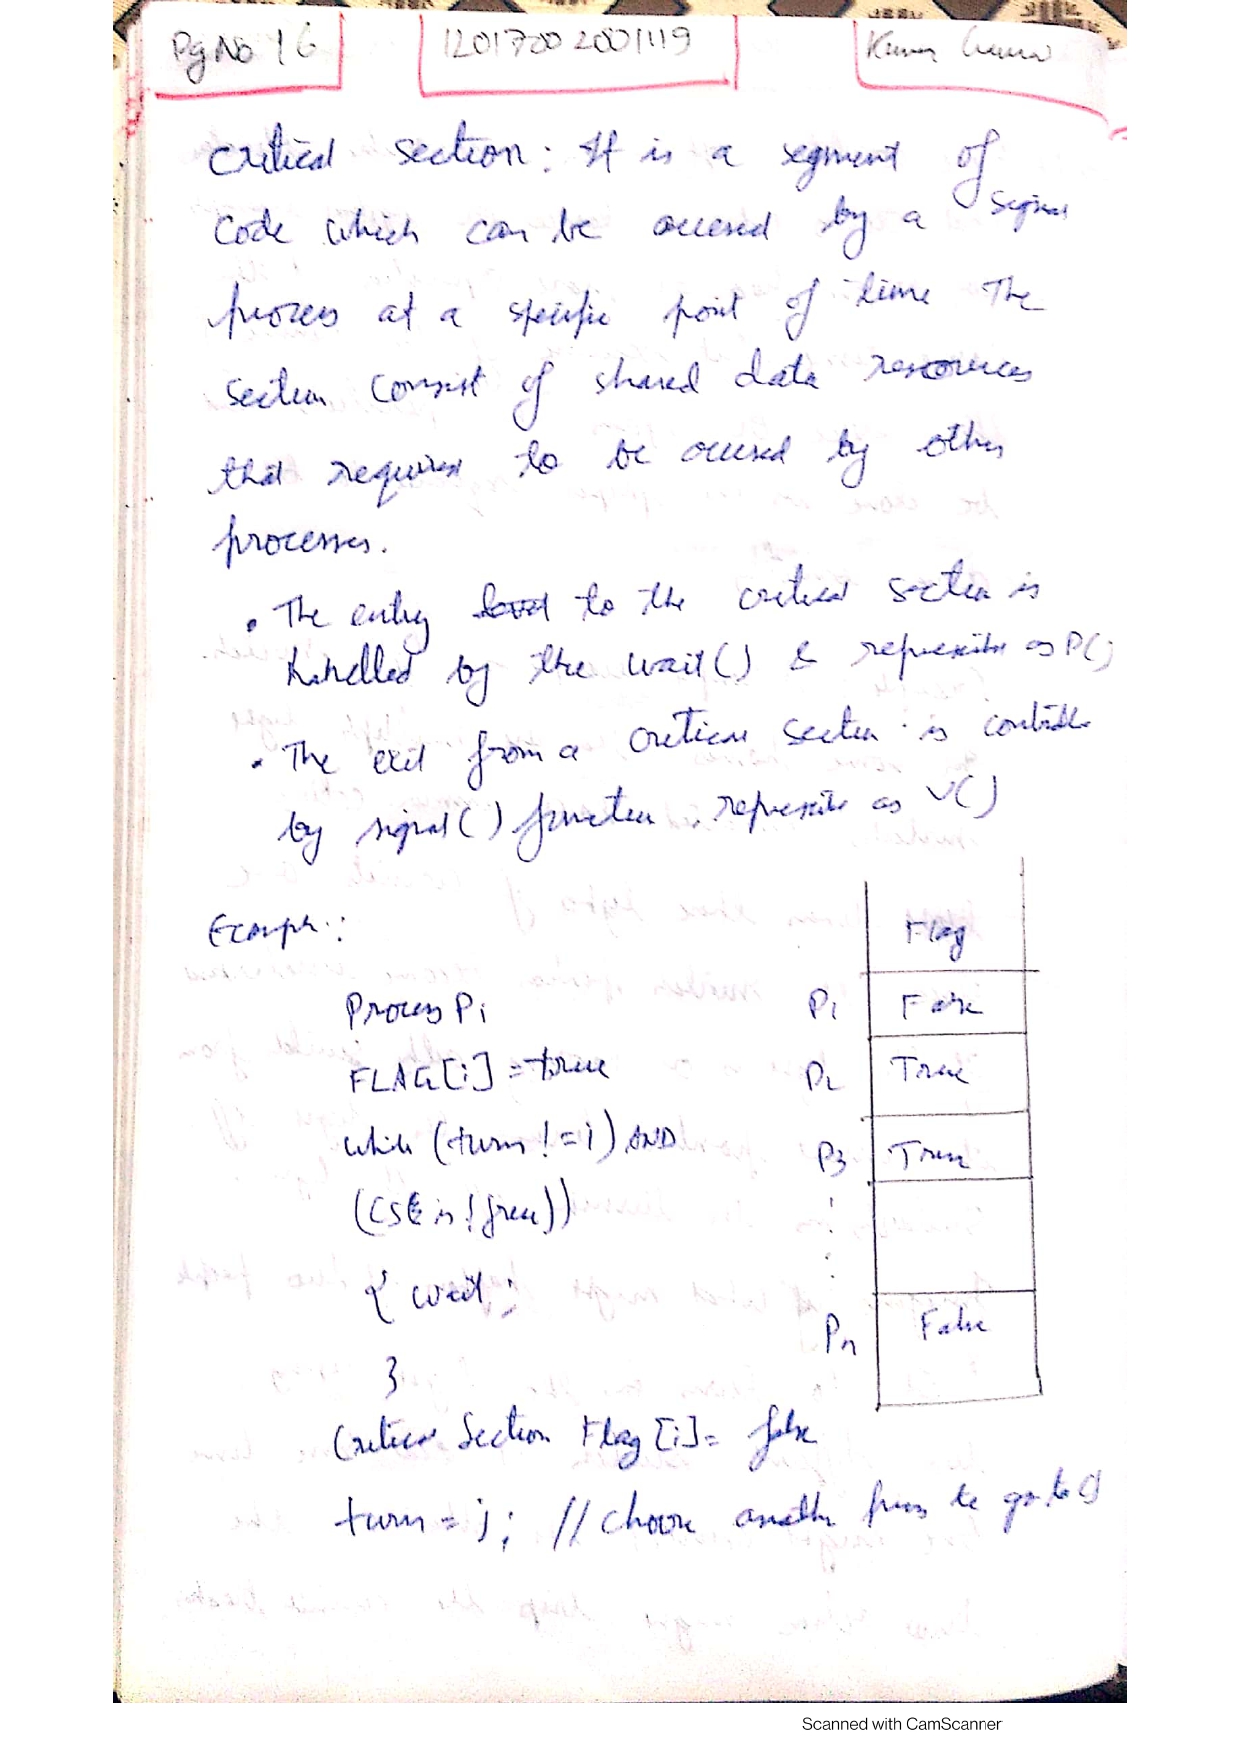 Pg No 16
12017002001119
Kumar
Critical Section : It is a segment of
Code which can be accessed by a signal
process at a specific point of time The
Section consist of shared data resources
that required to be accessed by other
processes.
• The entry to the critical section is
handled by the wait() & represents as P()
• The exit from a critical section is controlle
by signal() function represents as V()
Example :
Process Pi
FLAG[i] = true
while (turn != i) AND
(CS is ! free))
{ wait ;
}
Critical Section Flag [i] = false
turn = j; // choose another process to go to CS
Flag
P1 False
P2 True
P3 True
Pn False
Scanned with CamScanner